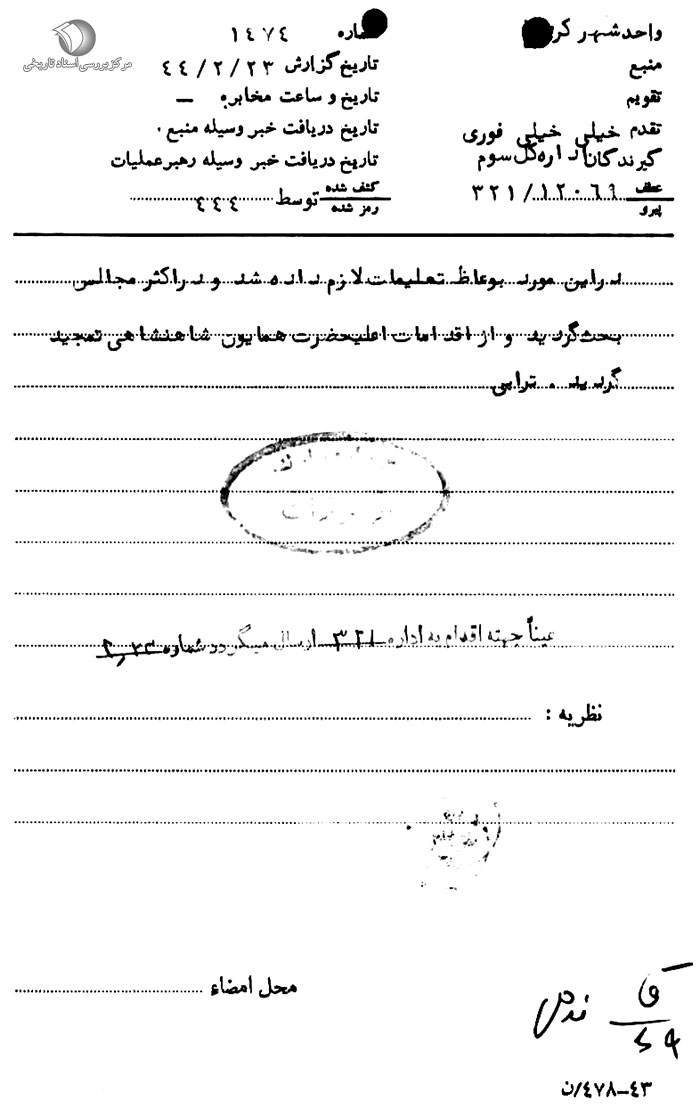 مرکز بررسی اسناد تاریخی
واحد شهر
شماره ۱۴۷۴
منبع
تاریخ گزارش ۴۴/۲/۲۳
تقویم
تاریخ و ساعت مخابره —
تقدم خیلی خیلی فوری
تاریخ دریافت خبر وسیله منبع .
گیرندگان اداره کل سوم
تاریخ دریافت خبر وسیله رهبر عملیات
عطف
پیرو
۳۲۱/۱۲۰۶۹
کشف شده
رمز شده
توسط ۴۴۴
در این مورد بوعاظ تعلیمات لازم داده شد و در اکثر مجالس
بحث گردید و از اقدامات اعلیحضرت همایون شاهنشاهی تمجید
گردید . ترابی
عیناً جهته اقدام به اداره ۳۲۱ ارسال میگردد شماره
نظریه :
محل امضاء
۴۳–۴۷۸/ن